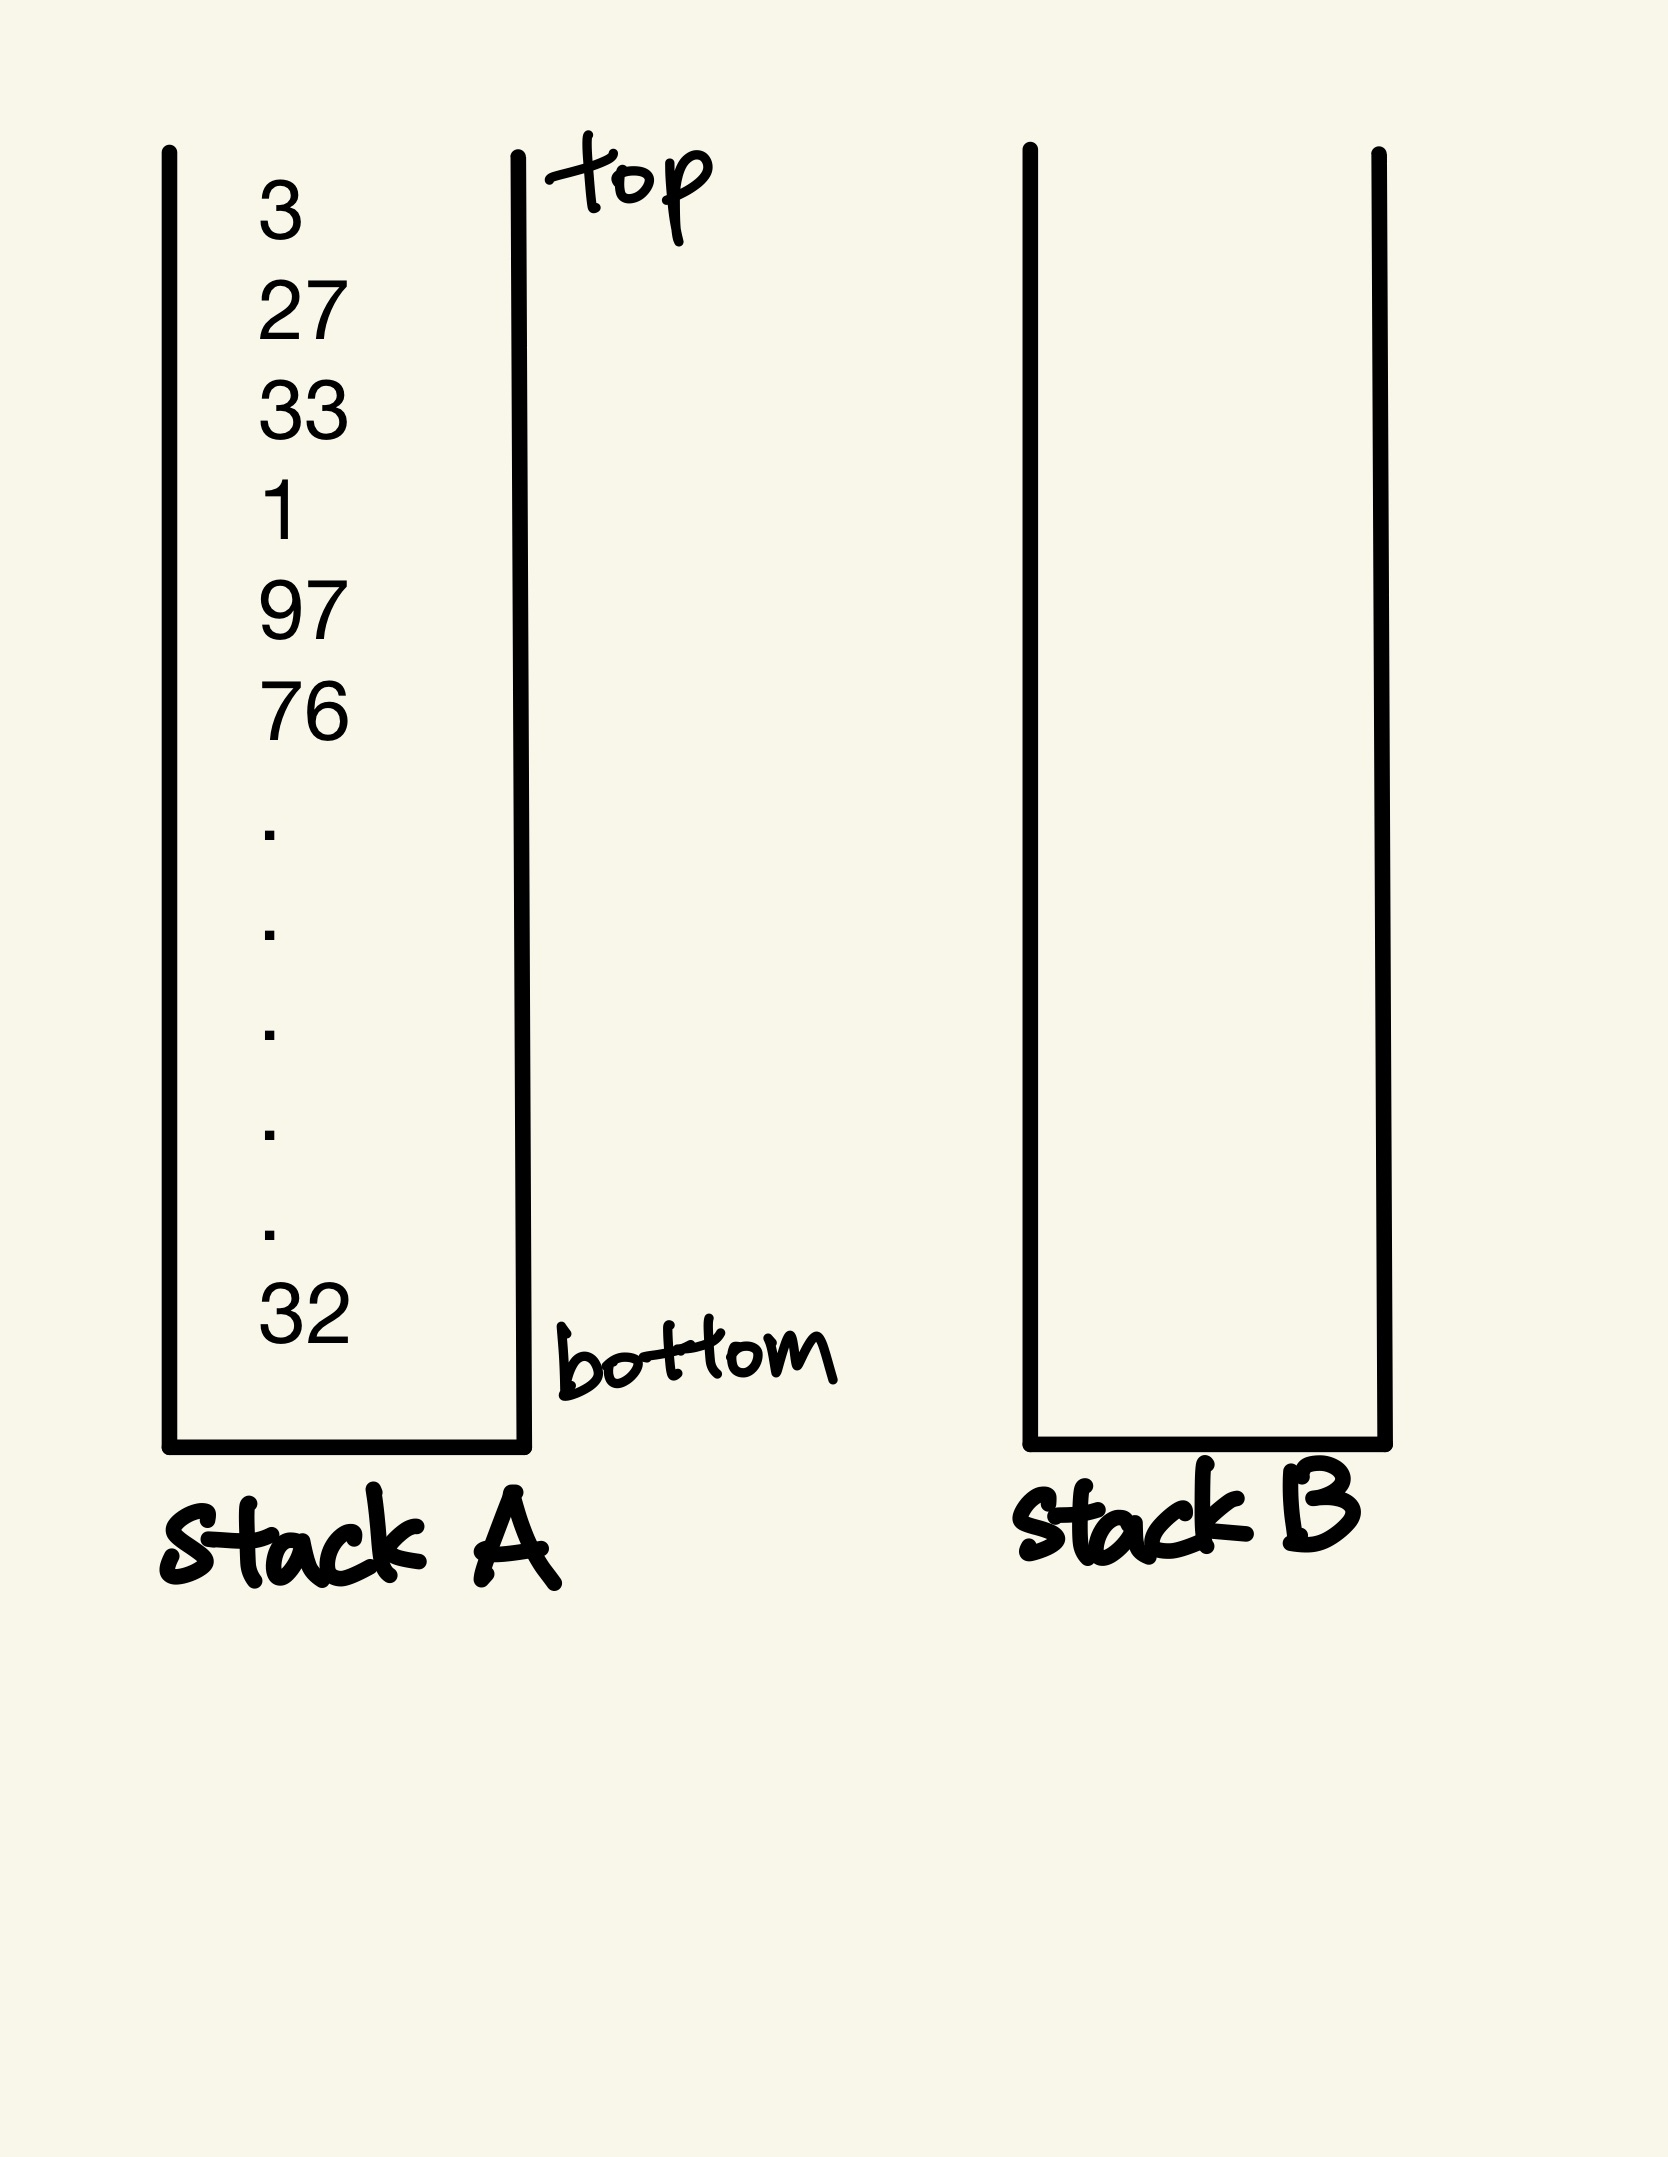 top
3
27
33
1
97
76
.
.
.
.
.
32
bottom
stack A
stack B